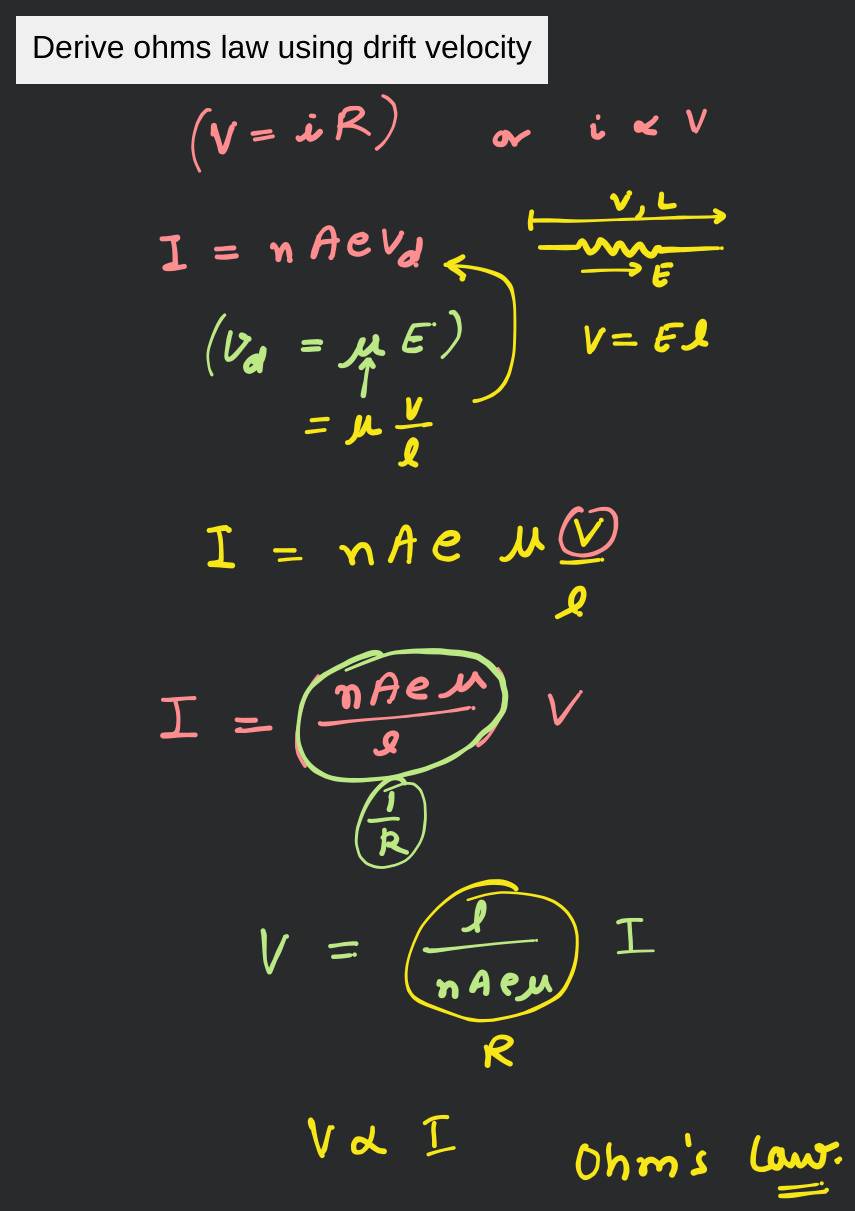 Derive ohms law using drift velocity
(V = i R) or i ∝ V
V, L
I = n A e Vd
E
(Vd = μ E)
V = E l
= μ V/l
I = n A e μ V/l
I = nAeμ/l V
1/R
V = l/nAeμ I
R
V ∝ I
Ohm's Law.